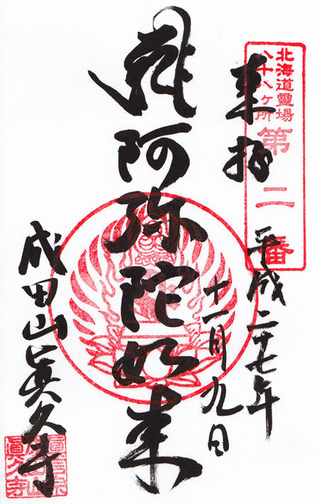 北海道靈場
八十八ヶ所
第二番
奉拝
平成二十七年
十一月九日
阿弥陀如来
成田山眞久寺